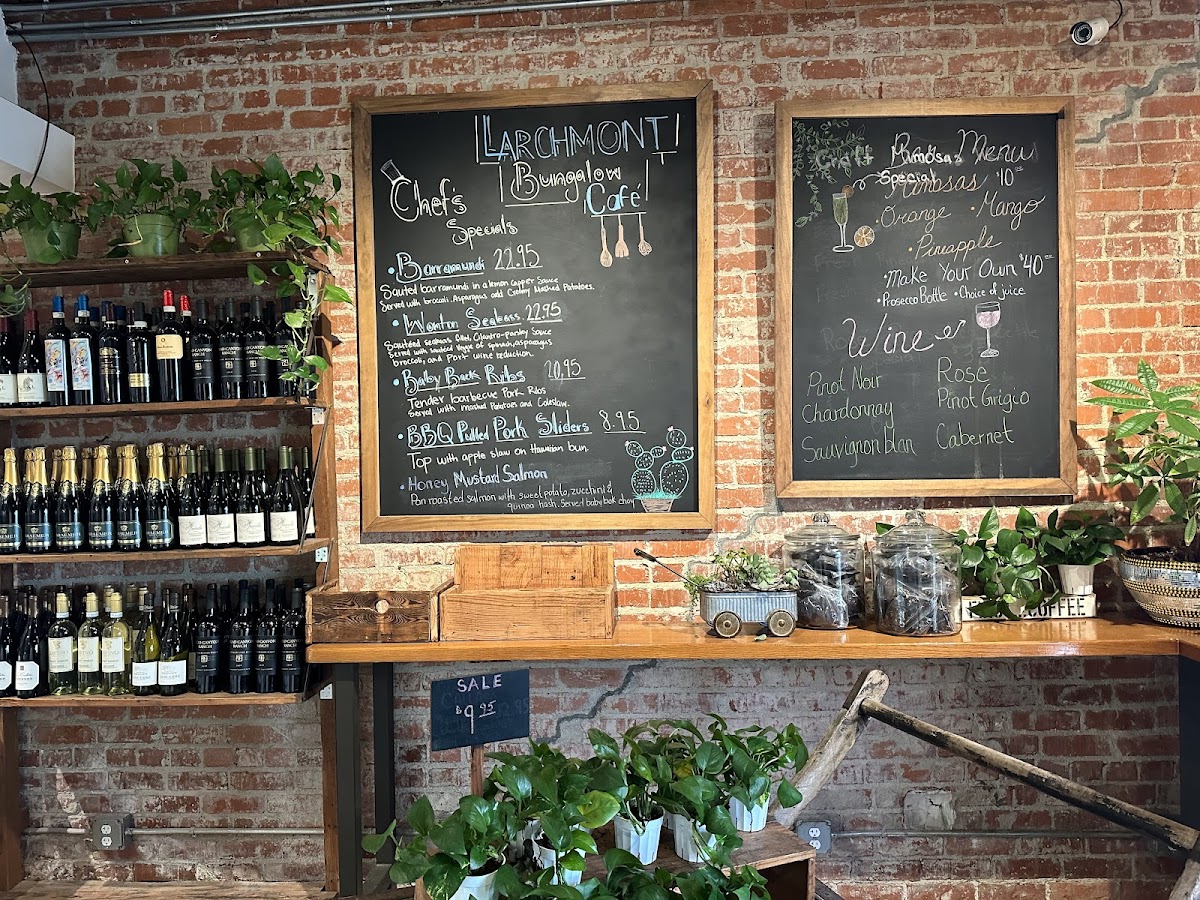 LARCHMONT
Bungalow
Café
Chef's
Specials
• Barramundi 22.95
Sauted barramundi in a lemon capper Sauce
Served with broccoli. Asparagus and Creamy Mashed Potatoes.
• Wonton Seabass 22.95
Sautéed seabass fillet, Cilantro-parsley Sauce
Served with sauteed veggie of spinach, asparagus
broccoli, and Port wine reduction.
• Baby Back Ribs 20.95
Tender barbecue Pork Ribs
Served with mashed Potatoes and Coleslaw.
• BBQ Pulled Pork Sliders 8.95
Top with apple slaw on Hawaiian bun
• Honey Mustard Salmon
Pan roasted salmon with sweet potato, zucchini &
quinoa hash. Served baby bok choy
Craft Mimosas Menu
Special Mimosas $10
• Orange • Mango
• Pineapple
• Make Your Own $40
• Prosecco Bottle • Choice of juice
Wine
Pinot Noir
Chardonnay
Sauvignon blan
Rose
Pinot Grigio
Cabernet
COFFEE
SALE
$9.95